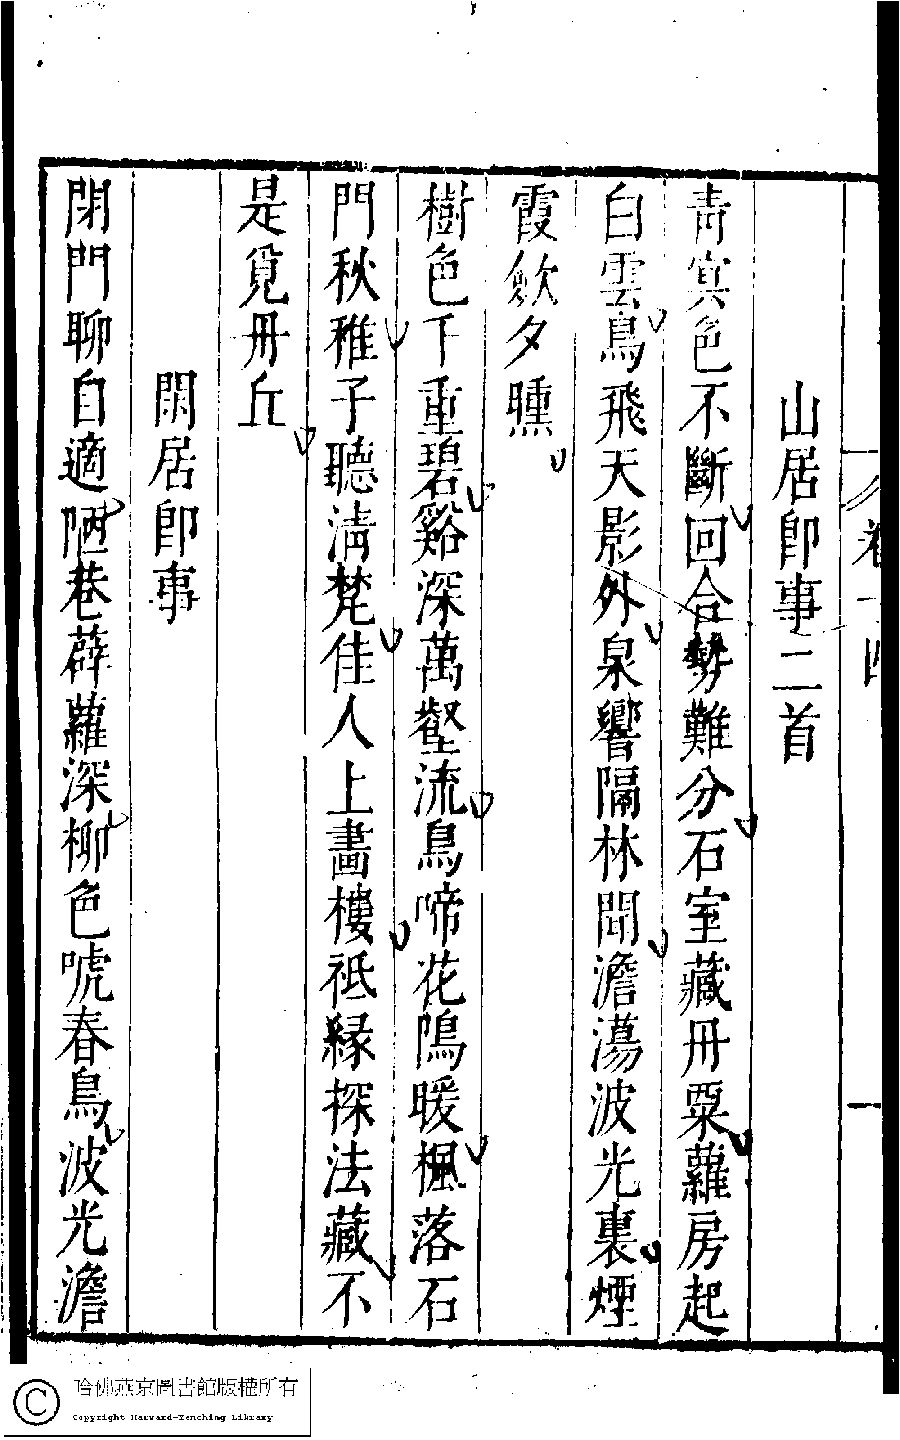 卷十四
一
山居即事二首
青冥色不斷回合勢難分石室藏丹粟蘿房起
白雲鳥飛天影外泉響隔林聞澹蕩波光裏煙
霞斂夕曛
樹色千重碧谿深萬壑流鳥啼花隖暖楓落石
門秋稚子聽清梵佳人上畫樓祗緣探法藏不
是覓丹丘
閑居即事
閉門聊自適陋巷薜蘿深柳色唬春鳥波光澹
哈佛燕京圖書館版權所有
Copyright Harvard-Yenching Library